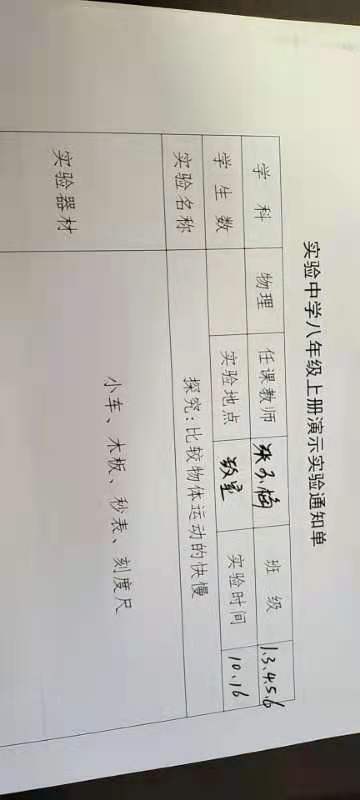 实验中学八年级上册演示实验通知单
学科 物理 任课教师 张玉梅 班级 1.3.4.5.6
学生数 实验地点 教室 实验时间 10.16
实验名称 探究:比较物体运动的快慢
实验器材 小车、木板、秒表、刻度尺